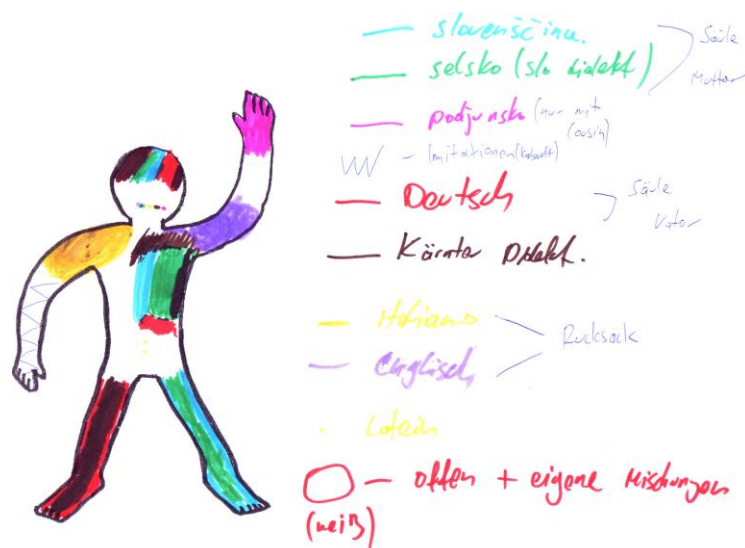 slovenščina.
selsko (slo dialekt)
Säule
Mutter
podjunsko (nur mit
cousin)
Imitationen (Kabarett)
Deutsch
Säule
Vater
Kärntner Dialekt.
italiano
englisch
Rucksack
Latein
offen + eigene Mischungen
(weiß)